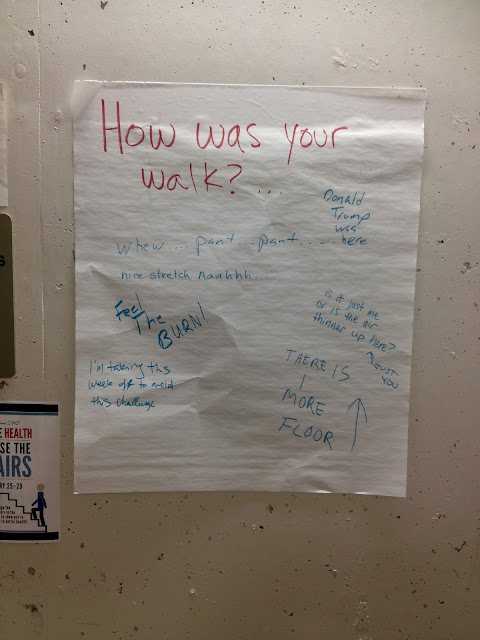 How was your
walk?...
Donald
Trump
was
here
whew... pant... pant......
nice stretch Aaahhh..
Feel
The
BURN!
is it just me
or is the air
thinner up here?
just
you
I'm taking this
week off to avoid
this challenge
THERE IS
1
MORE
FLOOR
HEALTH
SE THE
AIRS
RY 25-29